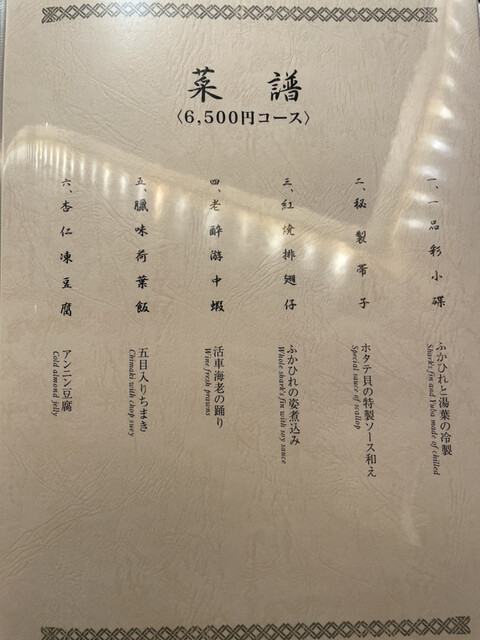 菜譜
〈6,500円コース〉
一、一品彩小碟
ふかひれと湯葉の冷製
Shark's fin and Yuba made of chilled
二、秘製帯子
ホタテ貝の特製ソース和え
Special sauce of scallop
三、紅焼排翅仔
ふかひれの姿煮込み
Whole shark's fin with soy sauce
四、老酔游中蝦
活車海老の踊り
Wine fresh prawns
五、臘味荷葉飯
五目入りちまき
Chimaki with chop suey
六、杏仁凍豆腐
アンニン豆腐
Cold almond jelly